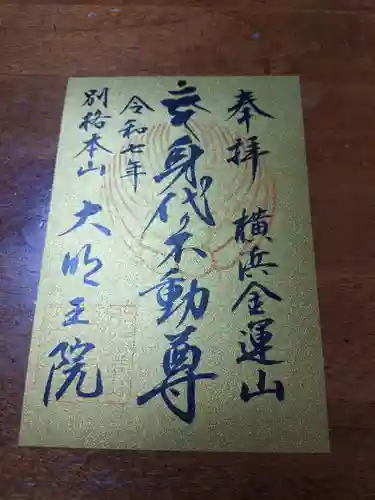 奉拝
横浜金運山
交身代り不動尊
令和七年
別格本山
大明王院